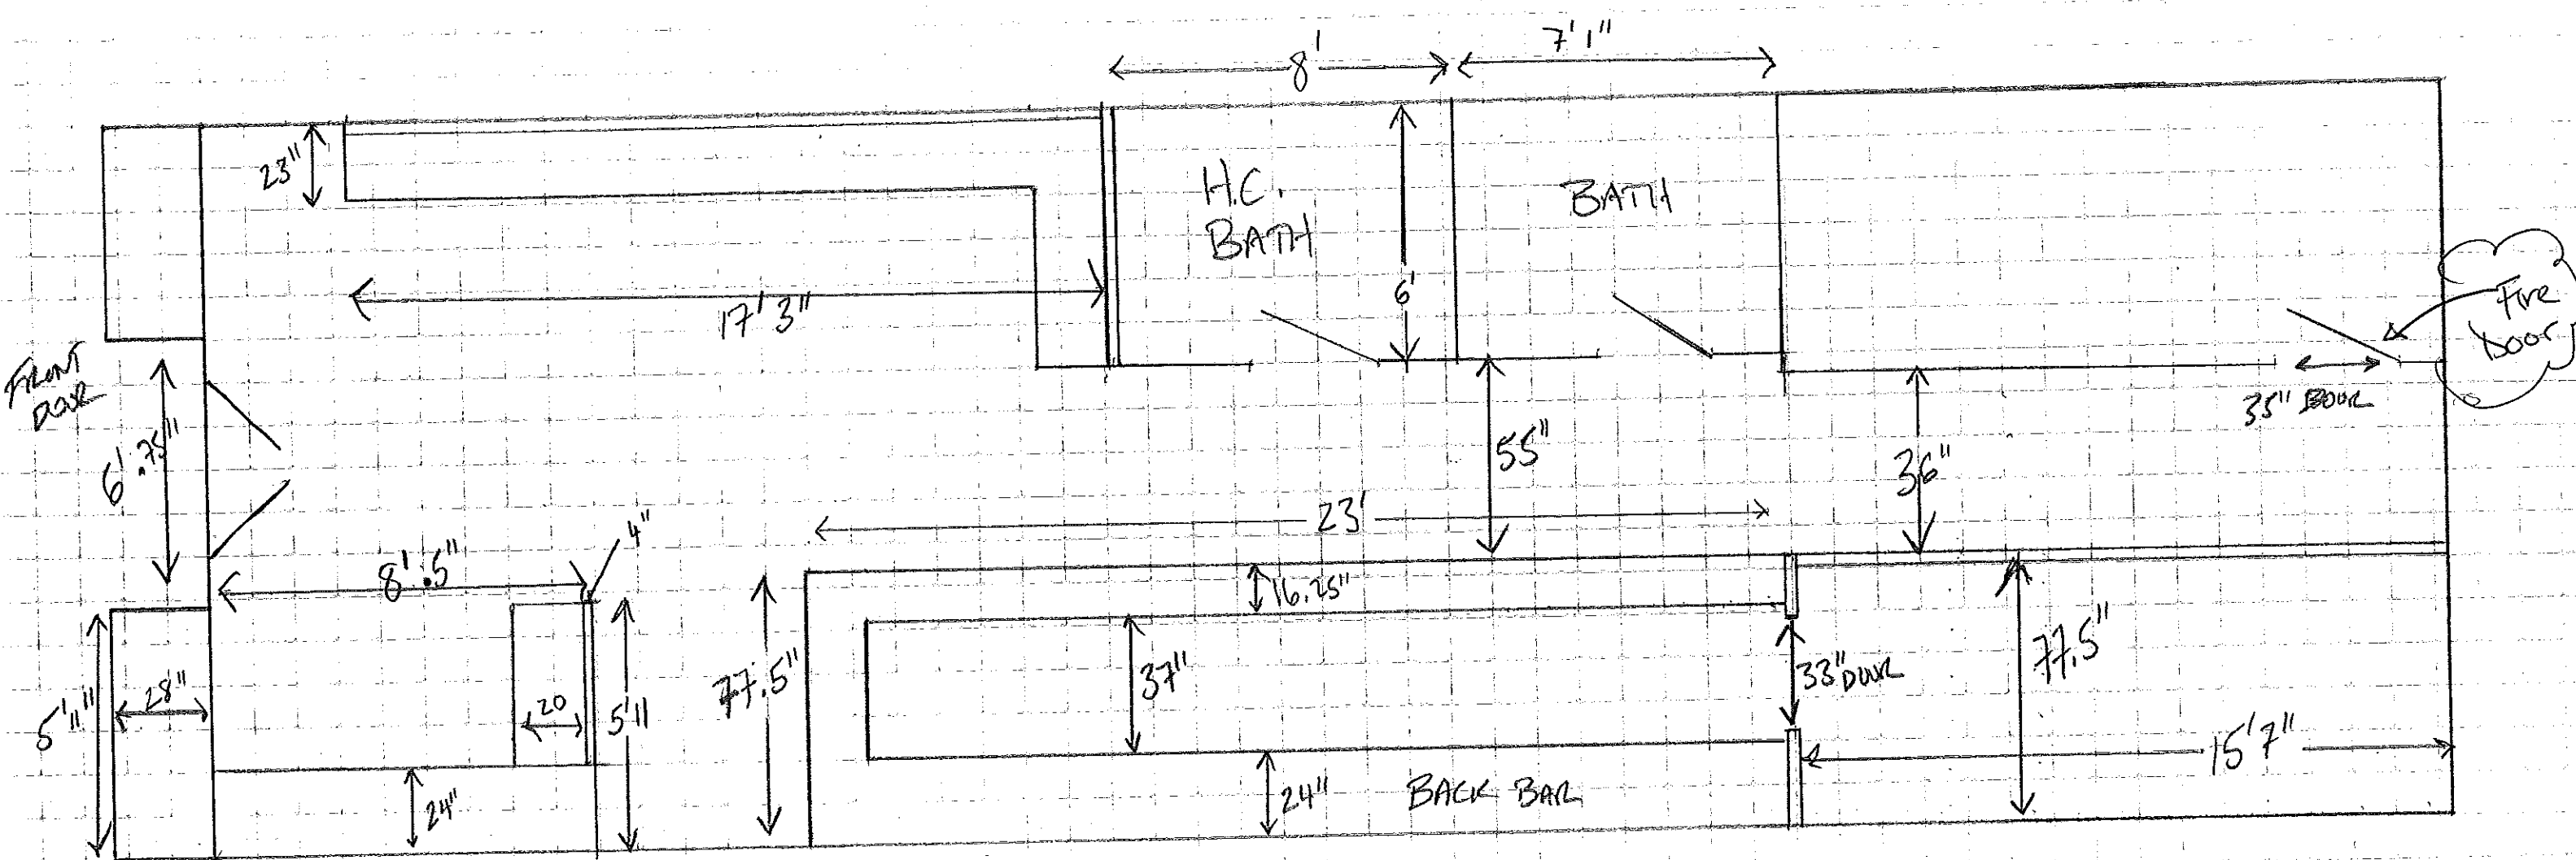 8'
7'1"
23"
H.C.
BATH
BATH
6'
17'3"
FRONT
DOOR
Fire
Door
35" DOOR
6'.75"
55"
36"
23'
4"
8'.5"
16.25"
77.5"
37"
33" DOOR
77.5"
5'11"
28"
20
5'11
15'7"
24"
24"
BACK BAR